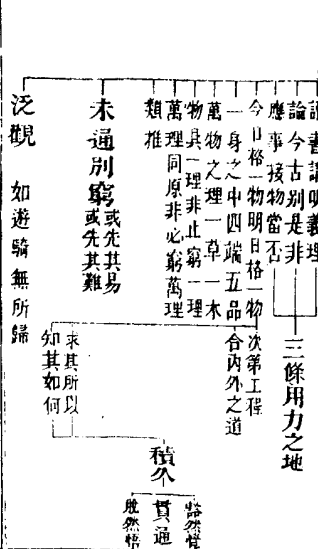 讀書講明義理
論今古别是非
應事接物當否
三條用力之地
今日格一物明日格一物
次第工程
一身之中四端五品
合內外之道
萬物之理一草一木
物具一理非止窮一理
萬理同原非必窮萬理
類推
未通别窮
或先其易
或先其難
泛觀
如遊騎無所歸
求其所以
知其如何
積久
豁然悟
貫通
脫然悟